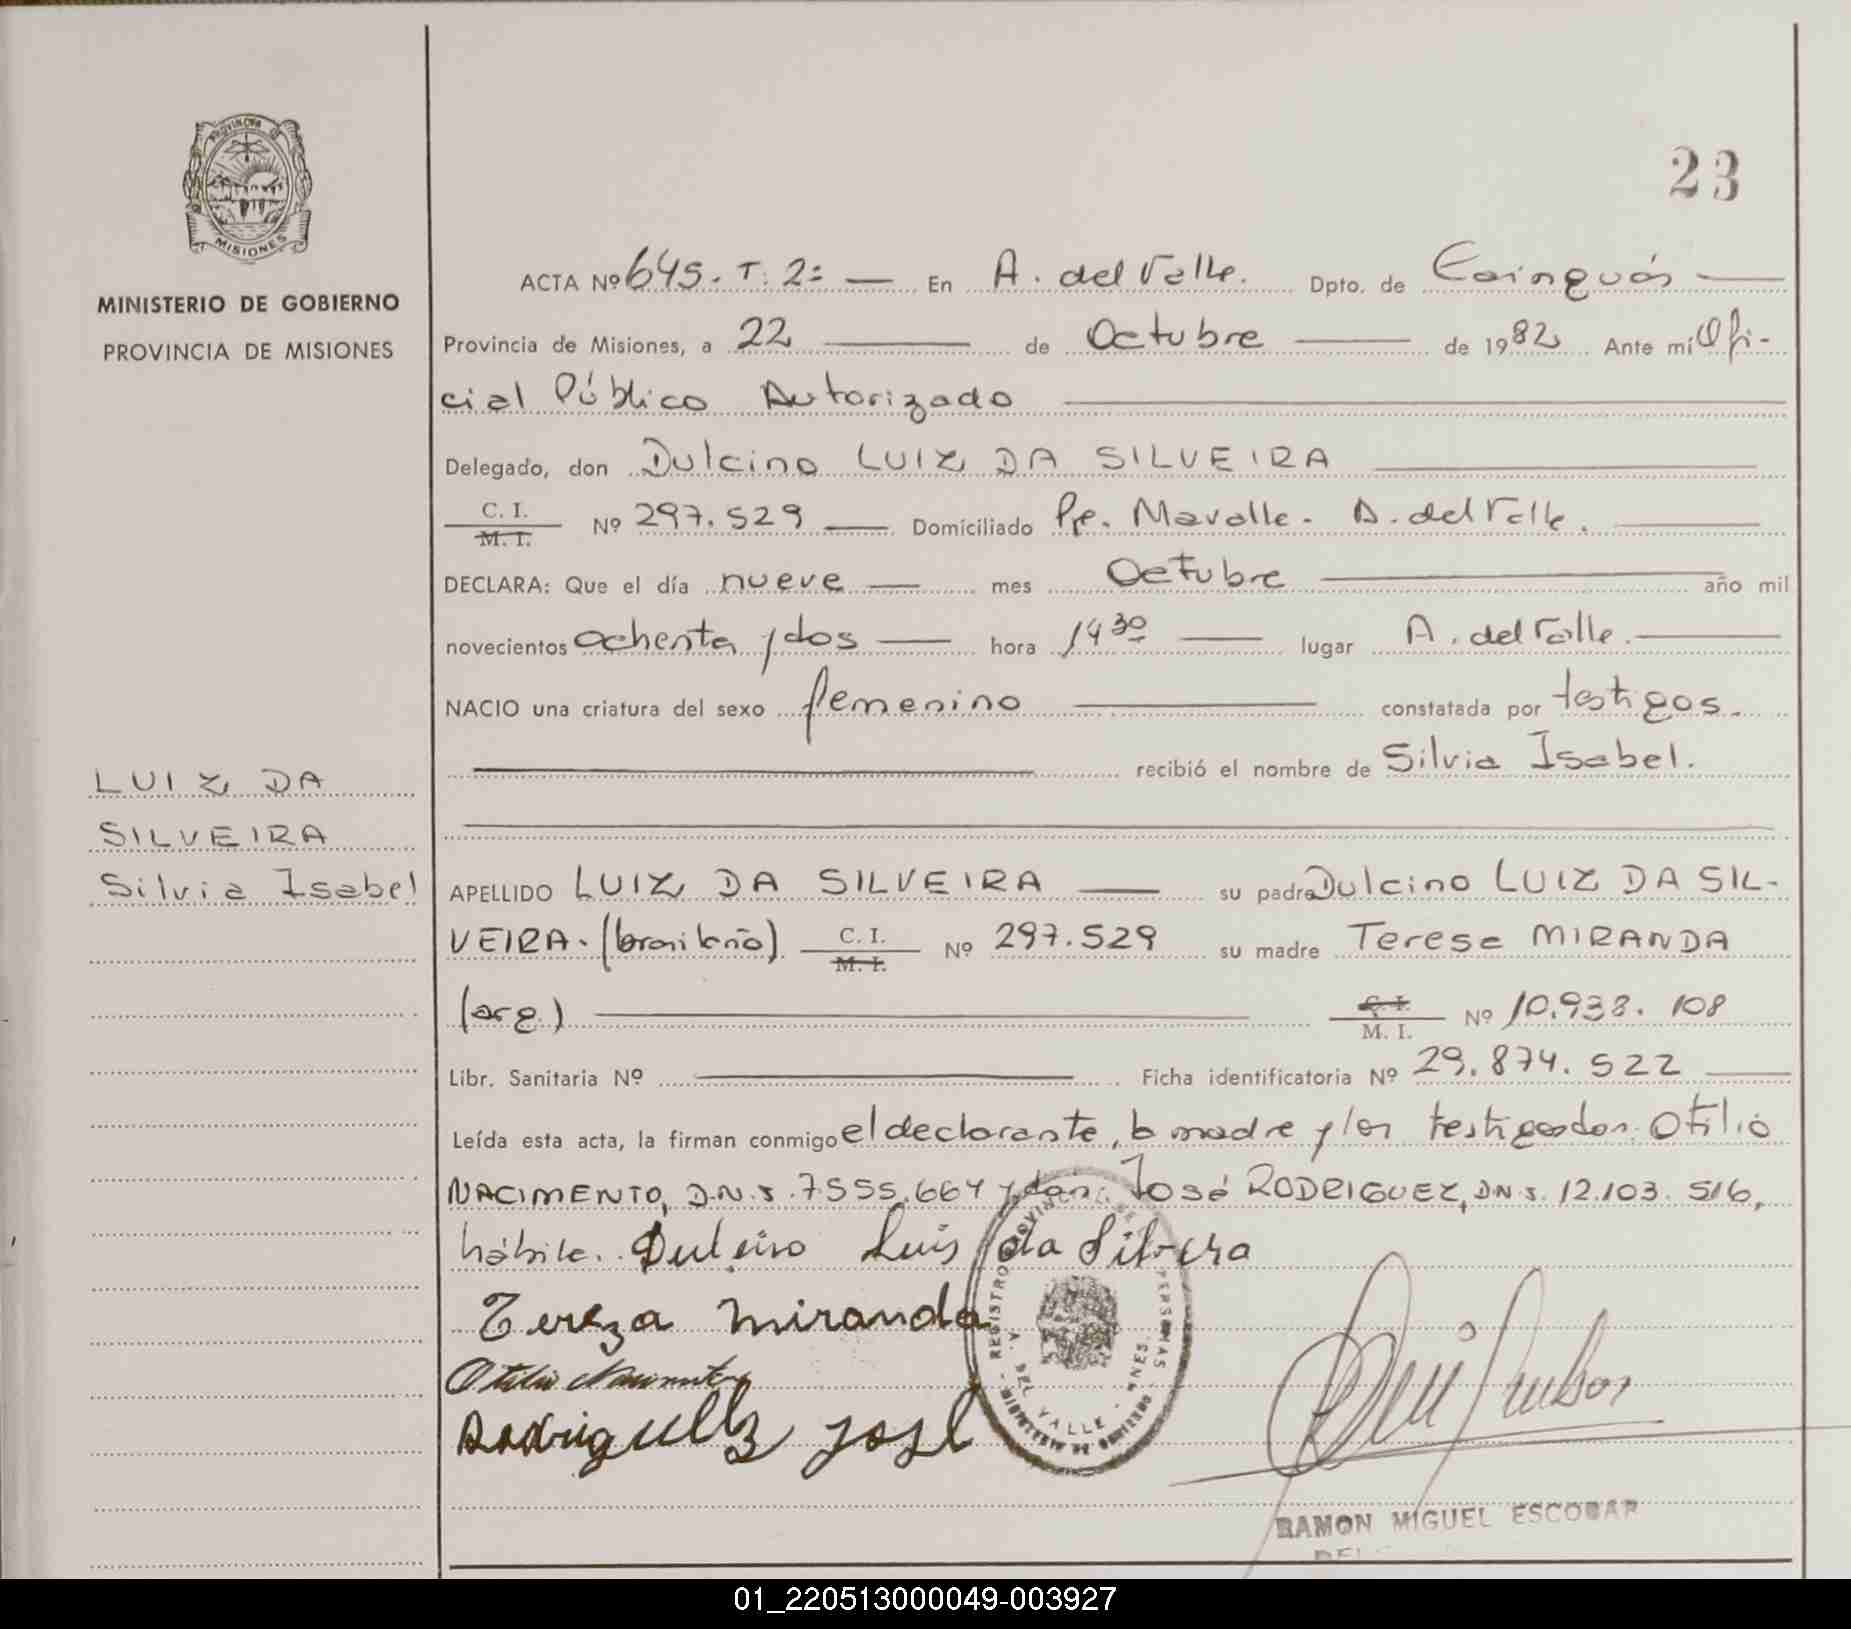 PROVINCIA DE
MISIONES
MINISTERIO DE GOBIERNO
PROVINCIA DE MISIONES
23
ACTA Nº 645. T. 2º — En A. del Valle. Dpto. de Cainguás —
Provincia de Misiones, a 22 — de Octubre — de 1982 Ante mí Ofi-
cial Público Autorizado —
Delegado, don Dulcino LUIZ DA SILVEIRA —
C. I. M. I. Nº 297.529 — Domiciliado Pje. Mavalle. A. del Valle. —
DECLARA: Que el día nueve — mes Octubre — año mil
novecientos ochenta y dos — hora 14 30 — lugar A. del Valle. —
NACIO una criatura del sexo femenino — constatada por testigos.
— recibió el nombre de Silvia Isabel.
LUIZ DA
SILVEIRA
Silvia Isabel
APELLIDO LUIZ DA SILVEIRA — su padre Dulcino LUIZ DA SIL-
VEIRA. (brasileño) C. I. M. I. Nº 297.529 su madre Teresa MIRANDA
(arg.) — C. I. M. I. Nº 10.938.108
Libr. Sanitaria Nº — Ficha identificatoria Nº 29.874.522 —
Leída esta acta, la firman conmigo el declarante, la madre y los testigos don Otilio
NACIMENTO, D.N.I. 7555.664 y don José RODRIGUEZ, DNI. 12.103.516,
hábiles. Dulcino Luis da Silvera
Tereza Miranda
Otilio Nacimento
Rodriguez José
REGISTRO PROVINCIAL DE PERSONAS
A. DEL VALLE
RAMON MIGUEL ESCOBAR
01_220513000049-003927